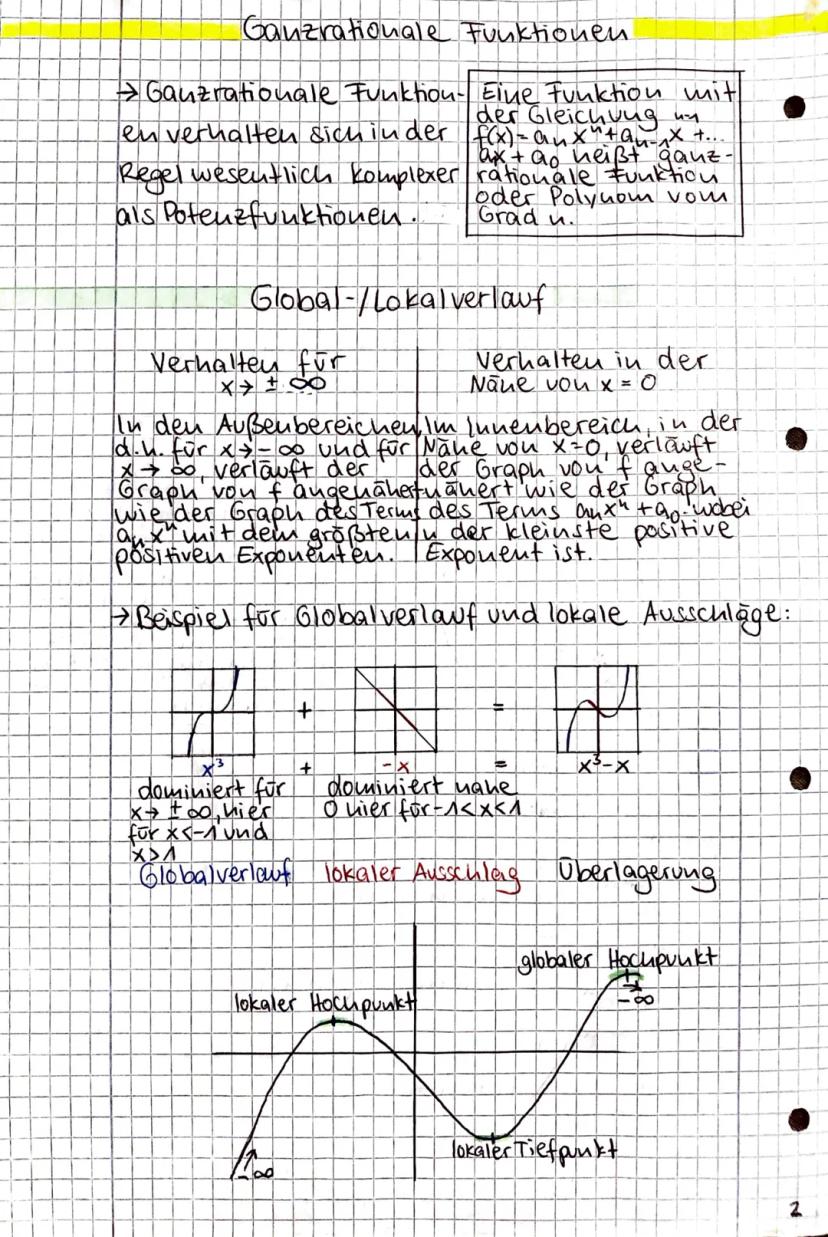 Ganzrationale Funktionen
→ Ganzrationale Funktion-
en verhalten sich in der
Regel wesentlich komplexer
als Potenzfunktionen.
Eine Funktion mit
der Gleichung
f(x)=aₙxⁿ+aₙ₋₁x +...
ax + a₀ heißt ganz-
rationale Funktion
oder Polynom vom
Grad n.
Global-/Lokalverlauf
Verhalten für
x→ ± ∞
In den Außenbereichen,
d.h. für x→-∞ und für
x→ ∞, verläuft der
Graph von f angenähert
wie der Graph des Terms
aₙxⁿ mit dem größten
positiven Exponenten.
Verhalten in der
Nähe von x = 0
Im Innenbereich, in der
Nähe von x=0, verläuft
der Graph von f ange-
nähert wie der Graph
des Terms aₙxⁿ + a₀ wobei
n der kleinste positive
Exponent ist.
→ Beispiel für Globalverlauf und lokale Ausschläge:
+ =
x³ + -x = x³-x
dominiert für
x→ ± ∞, hier
für x<-1 und
x>1
dominiert nahe
0 hier für -1<x<1
Globalverlauf lokaler Ausschlag Überlagerung
globaler Hochpunkt
-∞
lokaler Hochpunkt
lokaler Tiefpunkt
-∞
2